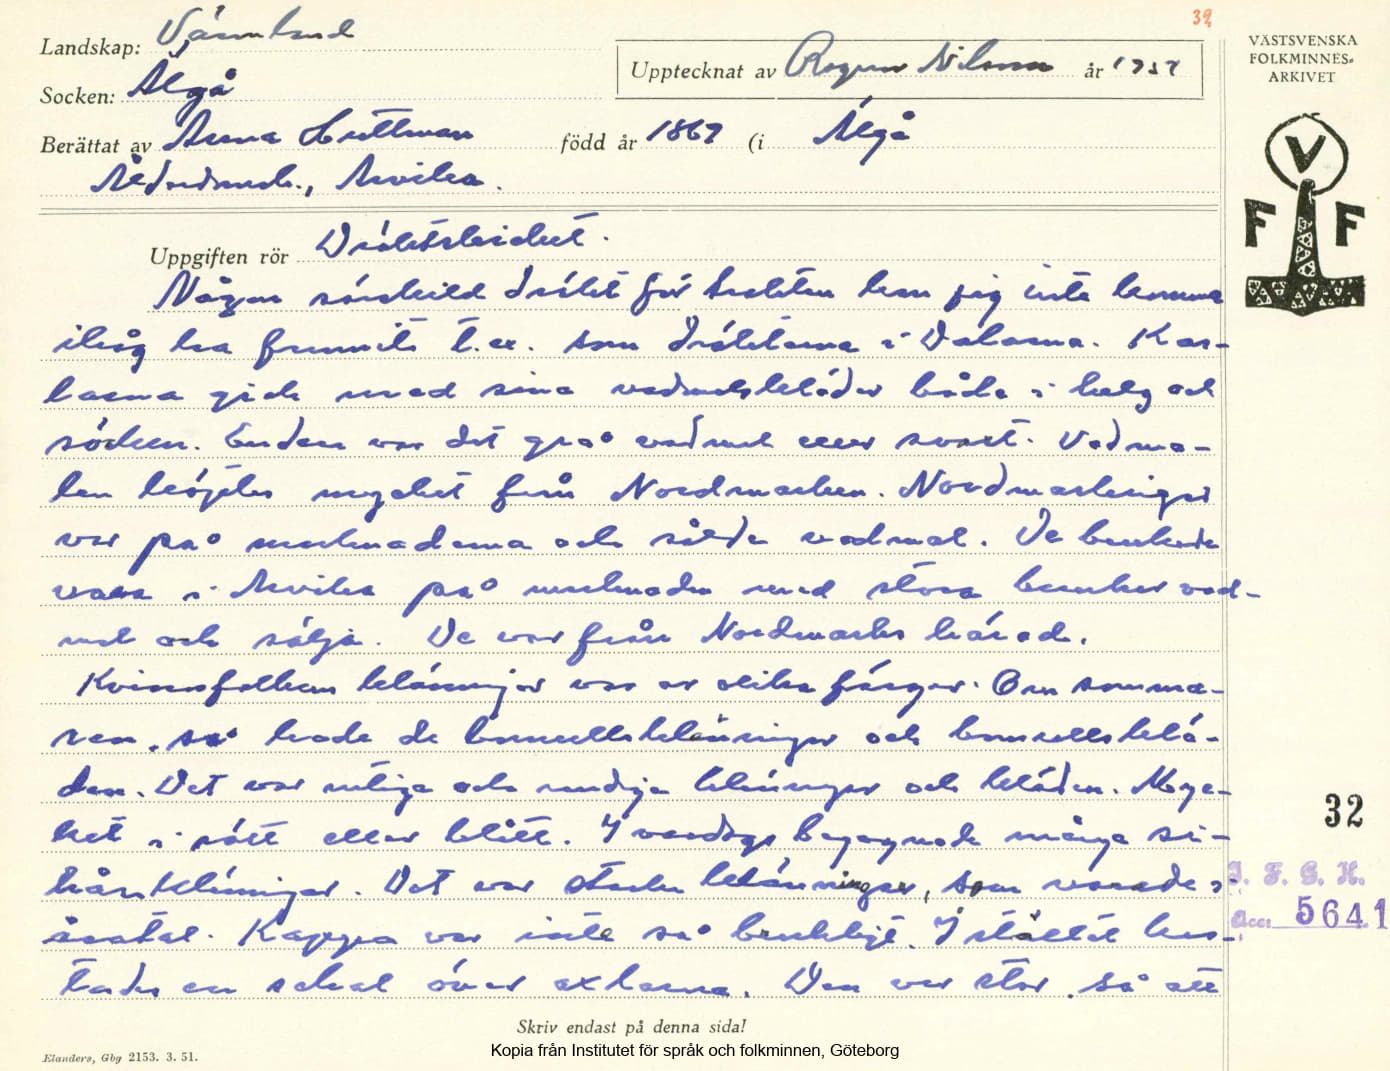 39
Landskap: Värmland
Upptecknat av Ragnar Nilsson år 1957
VÄSTSVENSKA
FOLKMINNES-
ARKIVET
Socken: Älgå
Berättat av Anna Huttman född år 1867 (i Älgå
Ålderdomsh., Arvika.
V
F F
Uppgiften rör Dräktskicket.
Någon särskild dräkt för trakten kan jag inte komma
ihåg ha funnits t.ex. som dräkterna i Dalarna. Kar-
larna gick med sina vadmalskläder både i helg och
söcken. Endera var det grå vadmal eller svart. Vadma-
len köptes mycket från Nordmarken. Nordmarkingar
var på marknaderna och sålde vadmal. De brukade
vara i Arvika på marknaden med stora buntar vad-
mal och sälja. De var från Nordmarks härad.
Kvinnsfolkens klänningar var av olika färger. Om somma-
ren så hade de bomullsklänningar och bomullsklä-
den. Det var rutiga och randiga klänningar och kläden. Myc-
ket i rött eller blått. I vardags begagnade många
hårsklänningar. Det var starka klänningar, som varade i
åratal. Kappa var inte så brukligt. I stället kas-
tades en schal över axlarna. Den var stor så att
32
I. F. G. H.
Acc. 5641
Skriv endast på denna sida!
Elanders, Gbg 2153. 3. 51.
Kopia från Institutet för språk och folkminnen, Göteborg